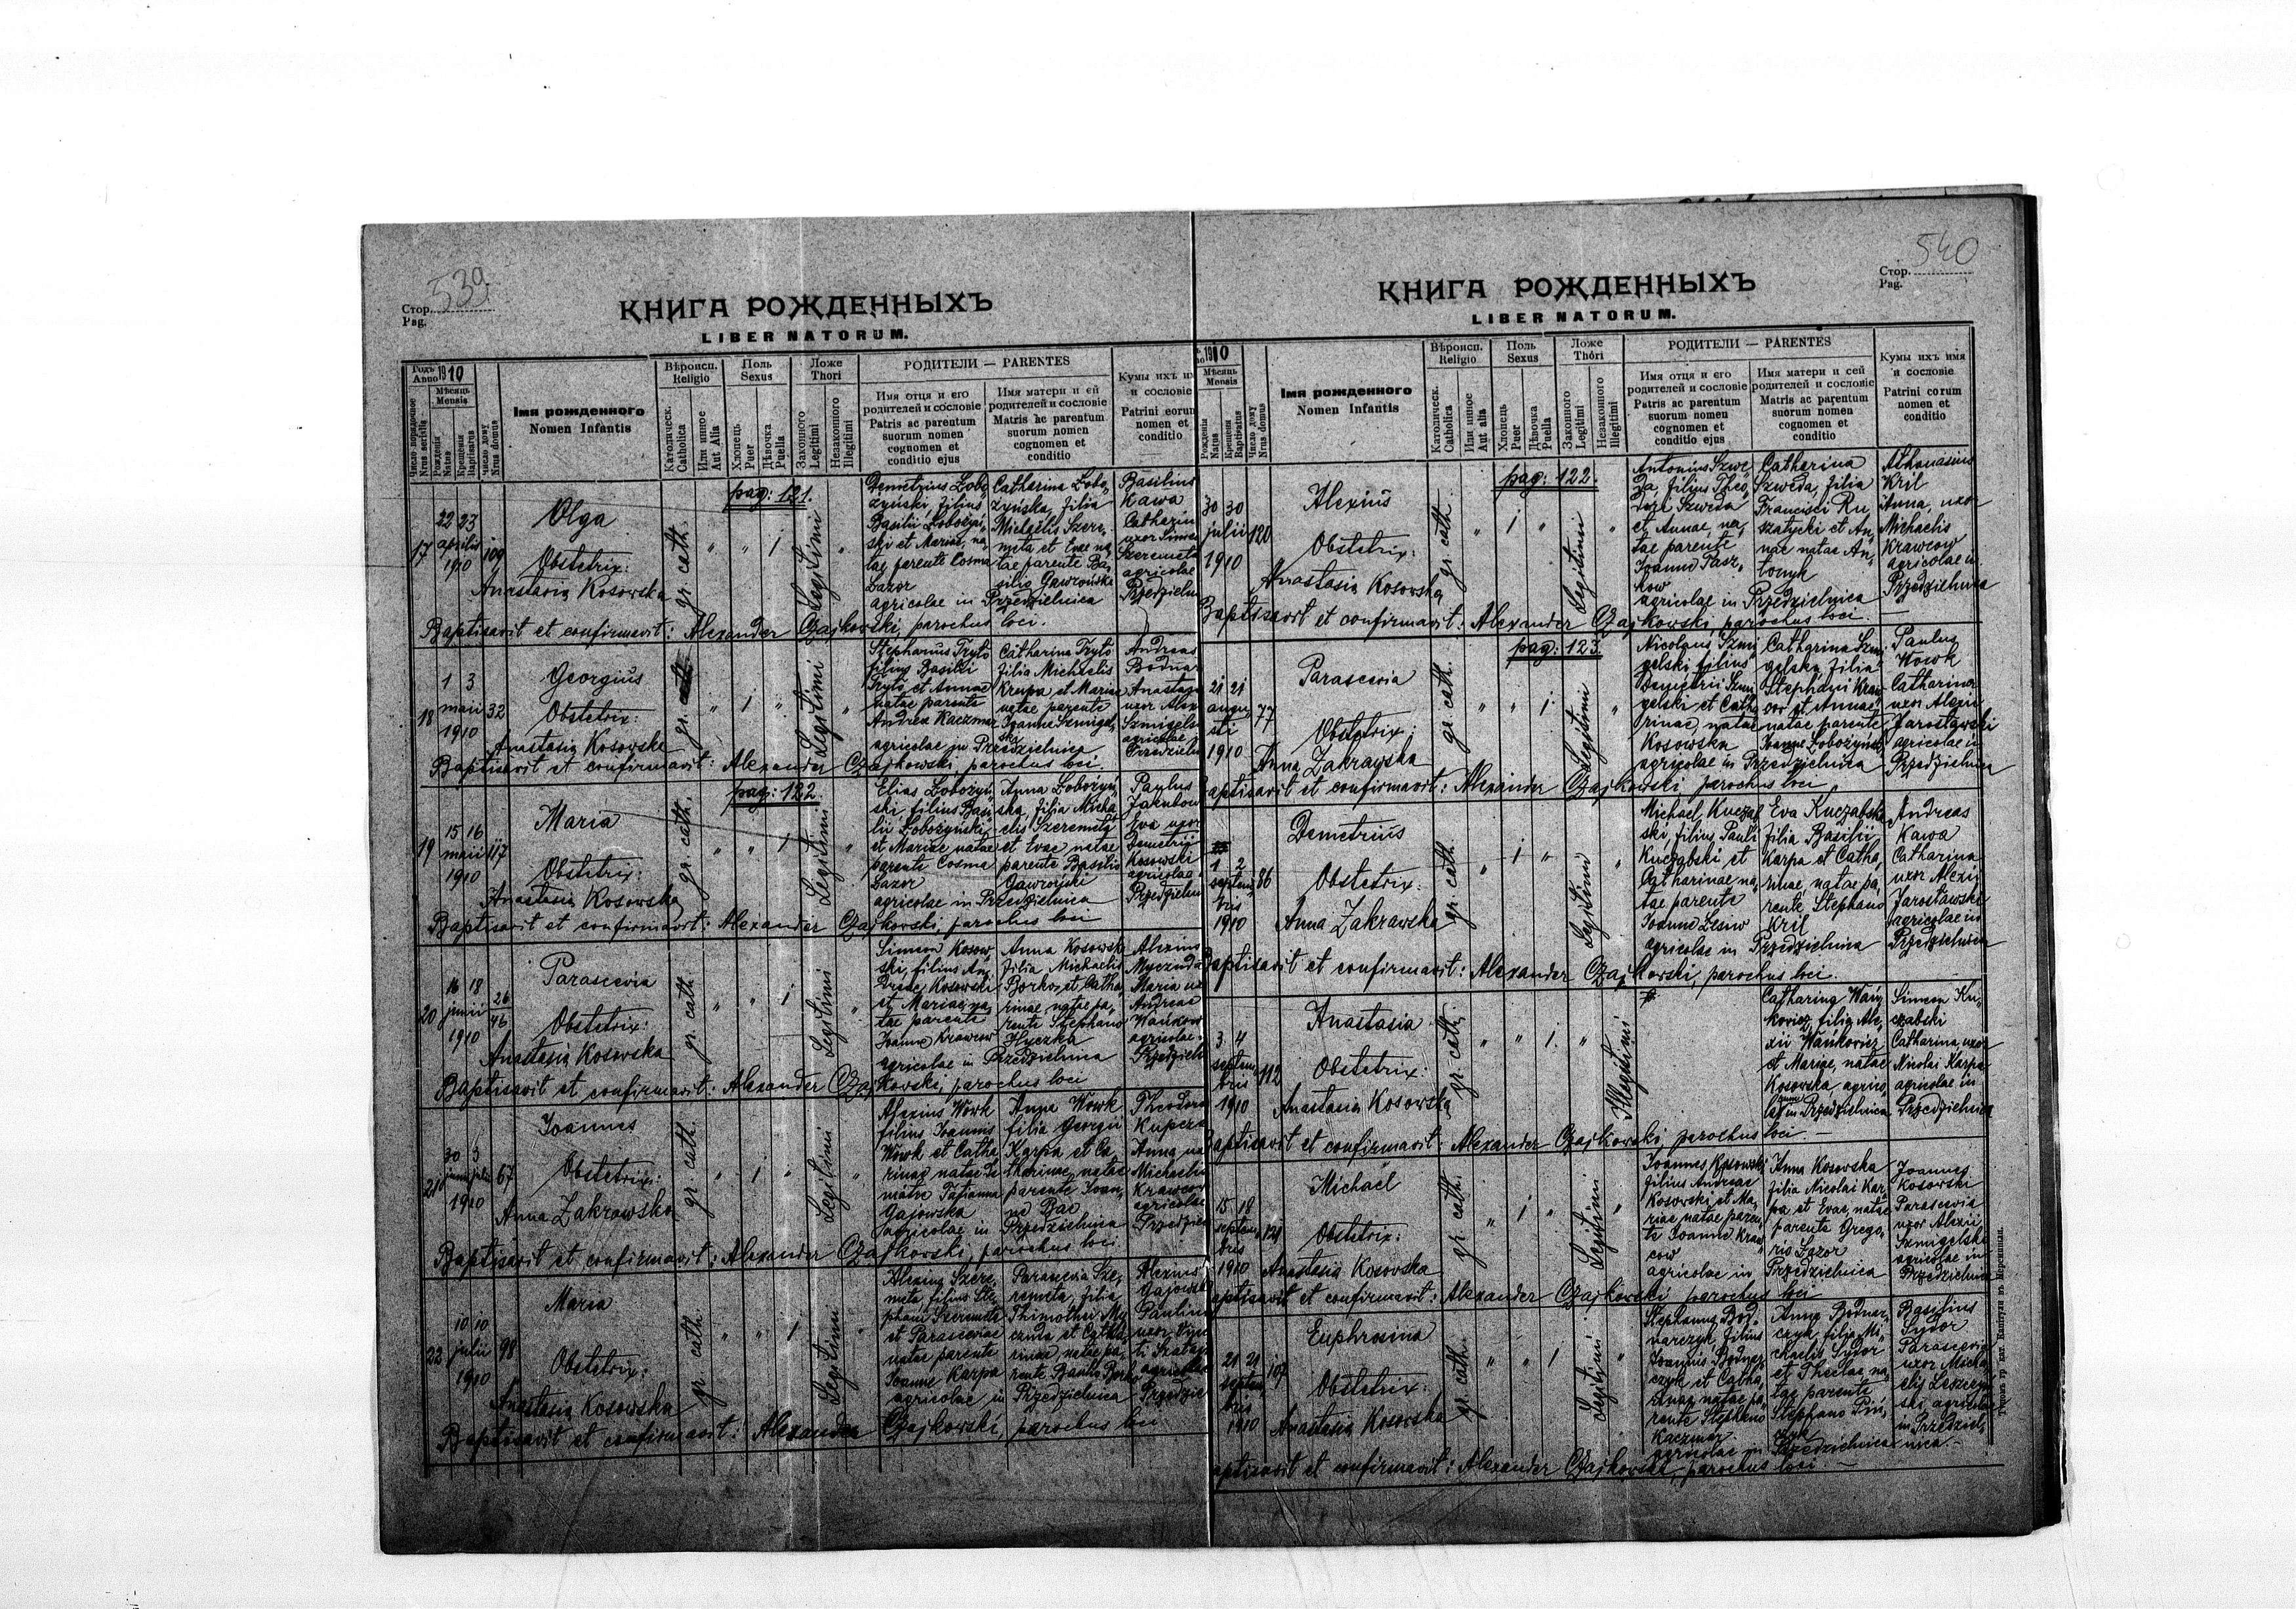 539
Стор.
Pag.
КНИГА РОЖДЕННЫХЪ
LIBER NATORUM.
Годъ 1910
Anno
Мѣсяць
Mensis
Число порядочное
Nrus serialis
Рожденія
Natus
Крещенія
Baptisatus
Число дому
Nrus domus
Імя рожденного
Nomen Infantis
Вѣроисп.
Religio
Католическ.
Catholica
Или инное
Aut Alia
Поль
Sexus
Хлопець
Puer
Дѣвочка
Puella
Ложе
Thori
Законного
Legitimi
Незаконного
Illegitimi
РОДИТЕЛИ — PARENTES
Имя отця и его
родителей и сословіе
Patris ac parentum
suorum nomen
cognomen et
conditio ejus
Имя матери и ей
родителей и сословіе
Matris ac parentum
suorum nomen
cognomen et
conditio
Кумы ихъ
и сословіе
Patrini eorum
nomen et
conditio
17
22 23
aprilis
1910
109
Olga
Obstetrix:
Anastasia Kosowska
gr. cath.
pag: 121.
1
Legitimi
Demetrius Łobo
zyński, filius
Basilii Łobożyń
ski et Mariae, na
tae parente Cosma
Lazor
Catharina Łobo
żyńska, filia
Michaelis Szere
meta et Evae na
tae parente Ba
silio Gawrońska
agricolae in Przedzielnica
Basilius
Kawa
Catharin
uxor Simeo
Szeremeta
agricolae
Przedzieln
Baptisavit et confirmavit: Alexander Czajkowski, parochus loci.
18
1 3
maii
1910
32
Georgius
Obstetrix:
Anastasia Kosowska
gr. cath
1
Legitimi
Stephanus Tryto
filius Basilii
Tryto et Annae
natae parente
Andrea Kaczmar
Catharina Tryto
filia Michaelis
Krupa et Mariae
natae parente
Ioanne Szmigel
ski
agricolae in Przedzielnica
Andreas
Bodnar
Anastasi
uxor Alex
Szmigels
agricolae
Przedzieln
Baptisavit et confirmavit: Alexander Czajkowski, parochus loci.
19
15 16
maii
1910
117
Maria
Obstetrix:
Anastasia Kosowska
gr. cath.
pag: 122.
1
Legitimi
Elias Łobożyń
ski filius Basi
lii Łobożyński
et Mariae natae
parente Cosma
Lazor
Anna Łobożyń
ska, filia Micha
elis Szeremeta
et Evae natae
parente Basilio
Gawroński
agricolae in Przedzielnica
Paulus
Jakubow
Eva uxor
Demetrii
Kosowski
agricolae
Przedzieln
Baptisavit et confirmavit: Alexander Czajkowski, parochus loci
20
16 18
junii
1910
26
46
Parascevia
Obstetrix:
Anastasia Kosowska
gr. cath.
1
Legitimi
Simeon Kosow
ski, filius An
dreae Kosowski
et Mariae, na
tae parente
Ioanne Krawcow
Anna Kosowska
filia Michaelis
Borkos et Catha
rinae, natae pa
rente Stephano
Hyczka
agricolae in Przedzielnica
Alexius
Myczuda
Maria ux
Andreae
Wańkow
agricolae
Przedzieln
Baptisavit et confirmavit: Alexander Czajkowski, parochus loci
21
30 3
junii julii
1910
67
Joannes
Obstetrix:
Anna Zakrawska
gr. cath.
1
Legitimi
Alexius Wowk
filius Joannis
Wowk et Catha
rinae natae de
matre Tatianna
Gajowska
Anna Wowk
filia Georgii
Karpa et Ca
tharinae, natae
parente Ioan
ne Bac
agricolae in Przedzielnica
Theodora
Kupcza
Anna ux
Michaelis
Krawcow
agricolae
Przedzieln
Baptisavit et confirmavit: Alexander Czajkowski, parochus loci.
22
10 10
julii
1910
98
Maria
Obstetrix:
Anastasia Kosowska
gr. cath.
1
Legitimi
Alexius Szere
meta, filius Ste
phani Szeremeta
et Parasceviae
natae parente
Ioanne Karpa
Parascevia Sze
remeta, filia
Thimothei My
czuda et Catha
rinae natae pa
rente Basilio Borko
agricolae in Przedzielnica
Alexius
Gajowsk
Paulina
uxor
agricolae
Przedzie
Baptisavit et confirmavit: Alexander Czajkowski, parochus loci
540
Стор.
Pag.
КНИГА РОЖДЕННЫХЪ
LIBER NATORUM.
1910
Мѣсяць
Mensis
Рожденія
Natus
Крещенія
Baptisatus
Число дому
Nrus domus
Імя рожденного
Nomen Infantis
Вѣроисп.
Religio
Католическ.
Catholica
Или инное
Aut alia
Поль
Sexus
Хлопець
Puer
Дѣвочка
Puella
Ложе
Thori
Законного
Legitimi
Незаконного
Illegitimi
РОДИТЕЛИ — PARENTES
Имя отця и его
родителей и сословіе
Patris ac parentum
suorum nomen
cognomen et
conditio ejus
Имя матери и сей
родителей и сословіе
Matris ac parentum
suorum nomen
cognomen et
conditio
Кумы ихъ имя
и сословіе
Patrini eorum
nomen et
conditio
30 30
julii
1910
120
Alexius
Obstetrix:
Anastasia Kosowska
gr. cath.
pag: 122.
1
Legitimi
Antonius Szwe
da, filius Theo
dori Szweda
et Annae, na
tae parente
Ioanne Pasz
kow
Catharina
Szweda, filia
Francisci Ru
szatycki et An
nae natae An
tonyk
agricolae in Przedzielnica
Athanasius
Kril
Anna, uxor
Michaelis
Krawcow
agricolae in
Przedzielnica
Baptisavit et confirmavit: Alexander Czajkowski parochus loci.
21 21
augu
sti
1910
77
Parascevia
Obstetrix:
Anna Zakrawska
gr. cath.
pag: 123.
1
Legitimi
Nicolaus Szmi
gelski filius
Demetrii Szmi
gelski et Catha
rinae, natae
Kosowska
Catharina Szmi
gelska filia
Stephani Kraw
cow et Annae
natae parente
Ioanne Łobożyńsk
agricolae in Przedzielnica
Paulus
Wowk
Catharina
uxor Alexii
Jarosławski
agricolae in
Przedzielnica
Baptisavit et confirmavit: Alexander Czajkowski parochus loci
1 2
septem
bris
1910
86
Demetrius
Obstetrix:
Anna Zakrawska
gr. cath.
1
Legitimi
Michael Kuczab
ski, filius Pauli
Kuczabski et
Catharinae na
tae parente
Ioanne Lesiw
Eva Kuczabska
filia Basilii
Karpa et Catha
rinae, natae pa
rente Stephano
Kril
agricolae in Przedzielnica
Andreas
Kawa
Catharina
uxor Alexii
Jarosławski
agricolae in
Przedzielnica
Baptisavit et confirmavit: Alexander Czajkowski, parochus loci.
3 4
septem
bris
1910
112
Anastasia
Obstetrix:
Anastasia Kosowska
gr. cath.
1
Illegitimi
Catharina Wań
kowicz, filia Ale
xii Wańkowicz
et Mariae, natae
Kosowska, agrico
in Przedzielnica
Simeon Ku
czabski
Catharina, uxor
Nicolai Karpa
agricolae in
Przedzielnica
Baptisavit et confirmavit: Alexander Czajkowski, parochus loci.
15 18
septem
bris
1910
121
Michael
Obstetrix:
Anastasia Kosowska
gr. cath.
1
Legitimi
Joannes Kosowski
filius Andreae
Kosowski et Ma
riae natae paren
te Ioanne Kraw
cow
Anna Kosowska
filia Nicolai Kar
pa et Evae, natae
parente Grego
rio Lazor
agricolae in Przedzielnica
Joannes
Kosowski
Parascevia
uxor Alexii
Szmigelski
agricolae in
Przedzielnica
Baptisavit et confirmavit: Alexander Czajkowski parochus loci
21 21
septem
bris
1910
107
Euphrosina
Obstetrix:
Anastasia Kosowska
gr. cath.
1
Legitimi
Stephanus Bod
narczyk, filius
Joannis Bodnar
czyk et Catha
rinae natae pa
rente Stephano
Kaczmar
Anna Bodnar
czyk, filia Mi
chaelis Sydor
et Theclae na
tae parente
Stephano Piń
czyk
agricolae in Przedzielnica
Basilius
Sydor
Parascevia
uxor Micha
elis Leszczyń
ski agricolae
in Przedziel
nica.
Baptisavit et confirmavit: Alexander Czajkowski, parochus loci